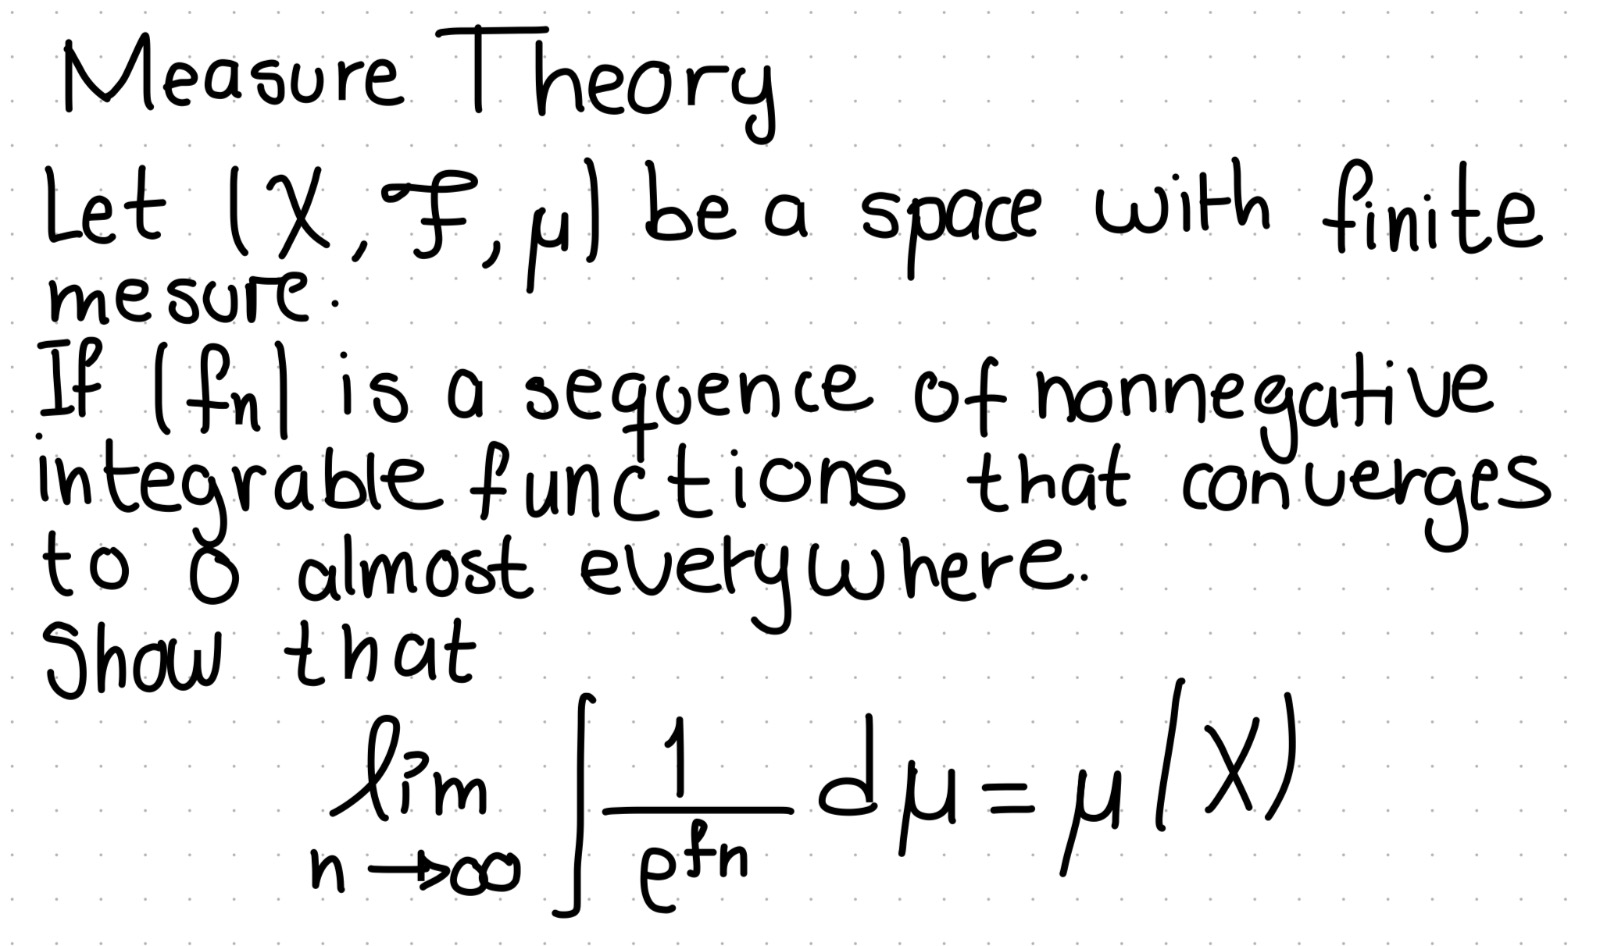 Measure Theory
Let (X, ℱ, μ) be a space with finite
mesure.
If (fn) is a sequence of nonnegative
integrable functions that converges
to 0 almost everywhere.
Show that
lim n→∞ ∫ 1/e^fn dμ = μ(X)